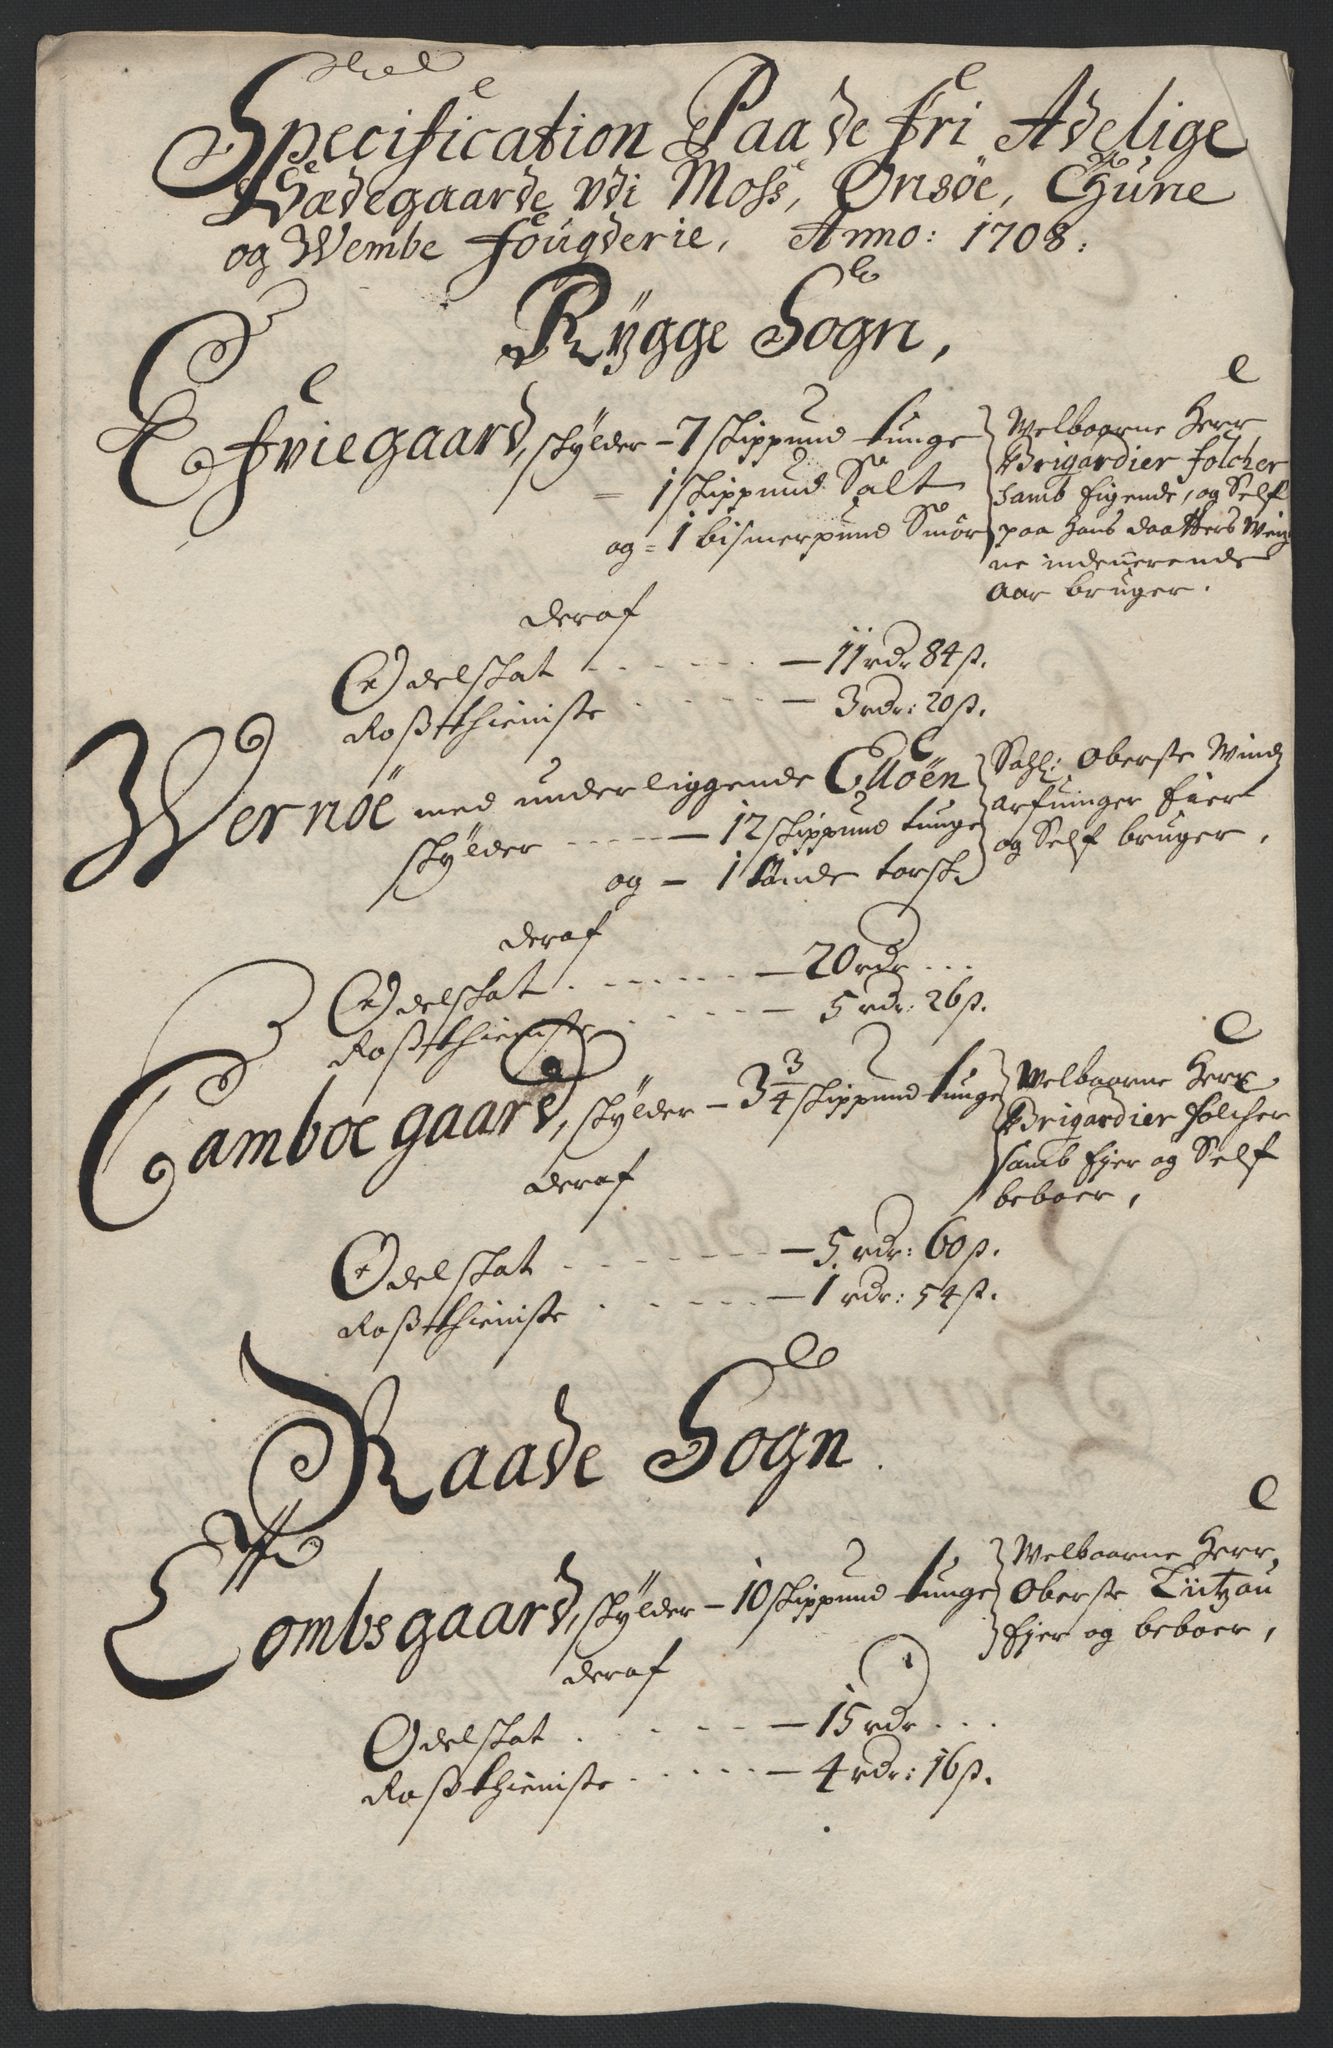 Specification Paa de fri Adelige
Sædegaarde Udi Moss, Onsöe, Thune
og Wembe fougderie, Anno: 1708:
Rygge Sogn,
Efviegaard, skylder – 7 skippund tunge
= 1 skippund Salt
og = 1 bismerpund Smör
Welbaarne Herr
Brigardier folcher
samb Eigende, og Self
paa hans daatters Weig
ne indeværende
Aar bruger.
deraf
Odelskat – 11 rdr 84 ß.
Rosstthieniste – 3 rdr: 20 ß.
Wernöe med underliggende Elløen
skylder – 12 skippund tunge
og – 1 tønde torsk
Sahl: Oberste Windz
arfuinger Eier
og Self bruger,
deraf
Odelskat – 20 rdr
Rosstthieniste – 5 rdr: 26 ß.
Camboe gaard, skylder – 3 3/4 skippund tunge
Welbaarne Herr
Brigardier folcher
samb Ejer og Self
beboer,
deraf
Odelskat – 5 rdr: 60 ß.
Rosstthieniste – 1 rdr: 54 ß.
Raade Sogn
Tombs gaard, skylder – 10 skippund tunge
Welbaarne Herr,
Oberste Lützou
Ejer og beboer,
deraf
Odelskat – 15 rdr
Rosstthieniste – 4 rdr: 16 ß.